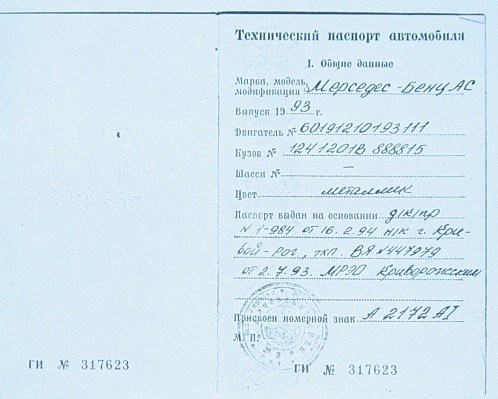 Технический паспорт автомобиля
1. Общие данные
Марка, модель,
модификация Мерседес-Бенц АС
Выпуск 19 93 г.
Двигатель № 60191210193111
Кузов № 1241201В 888815
Шасси № —
Цвет металлик
Паспорт выдан на основании д/к/пр
N 1-984 от 16.2.94 н/к г. Кри-
вой-Рог, тхп. ВЯ N447979
от 2.7.93. МРЭО Криворожским
Присвоен номерной знак А 2172 АI
М. П.
ГИ № 317623
ГИ № 317623